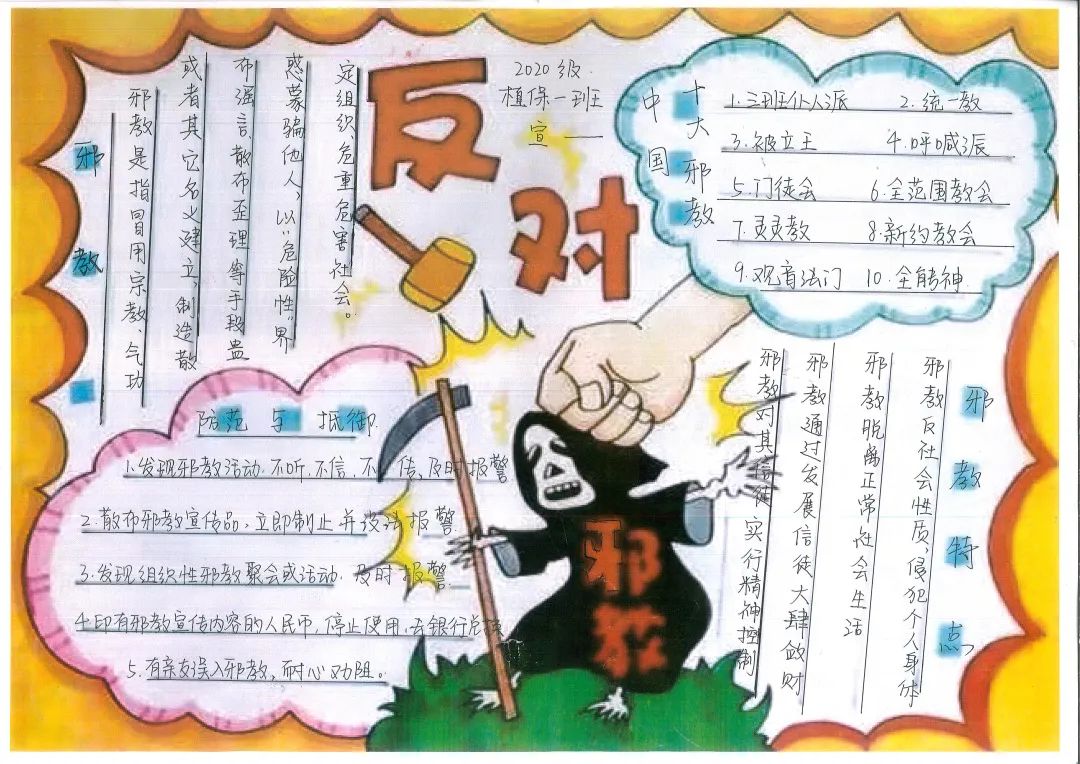 反对
2020级
植保一班
宣
邪教
邪教是指冒用宗教、气功
或者其它名义建立,制造散
布强言,散布歪理等手段蛊
惑蒙骗他人,以"危险性"界
定组织危重危害社会。
中国
十大邪教
1.三班仆人派 2.统一教
3.被立王 4.呼喊派
5.门徒会 6.全范围教会
7.灵灵教 8.新约教会
9.观音法门 10.全能神
防范与抵御
1.发现邪教活动.不听.不信.不传,及时报警
2.散布邪教宣传品,立即制止并设法报警
3.发现组织性邪教聚会或活动.及时报警
4.印有邪教宣传内容的人民币,停止使用,去银行兑换
5.有亲友误入邪教,耐心劝阻。
邪教
邪教特点
邪教反社会性质,侵犯个人身体
邪教脱离正常社会生活
邪教通过发展信徒大肆敛财
邪教对其信徒实行精神控制